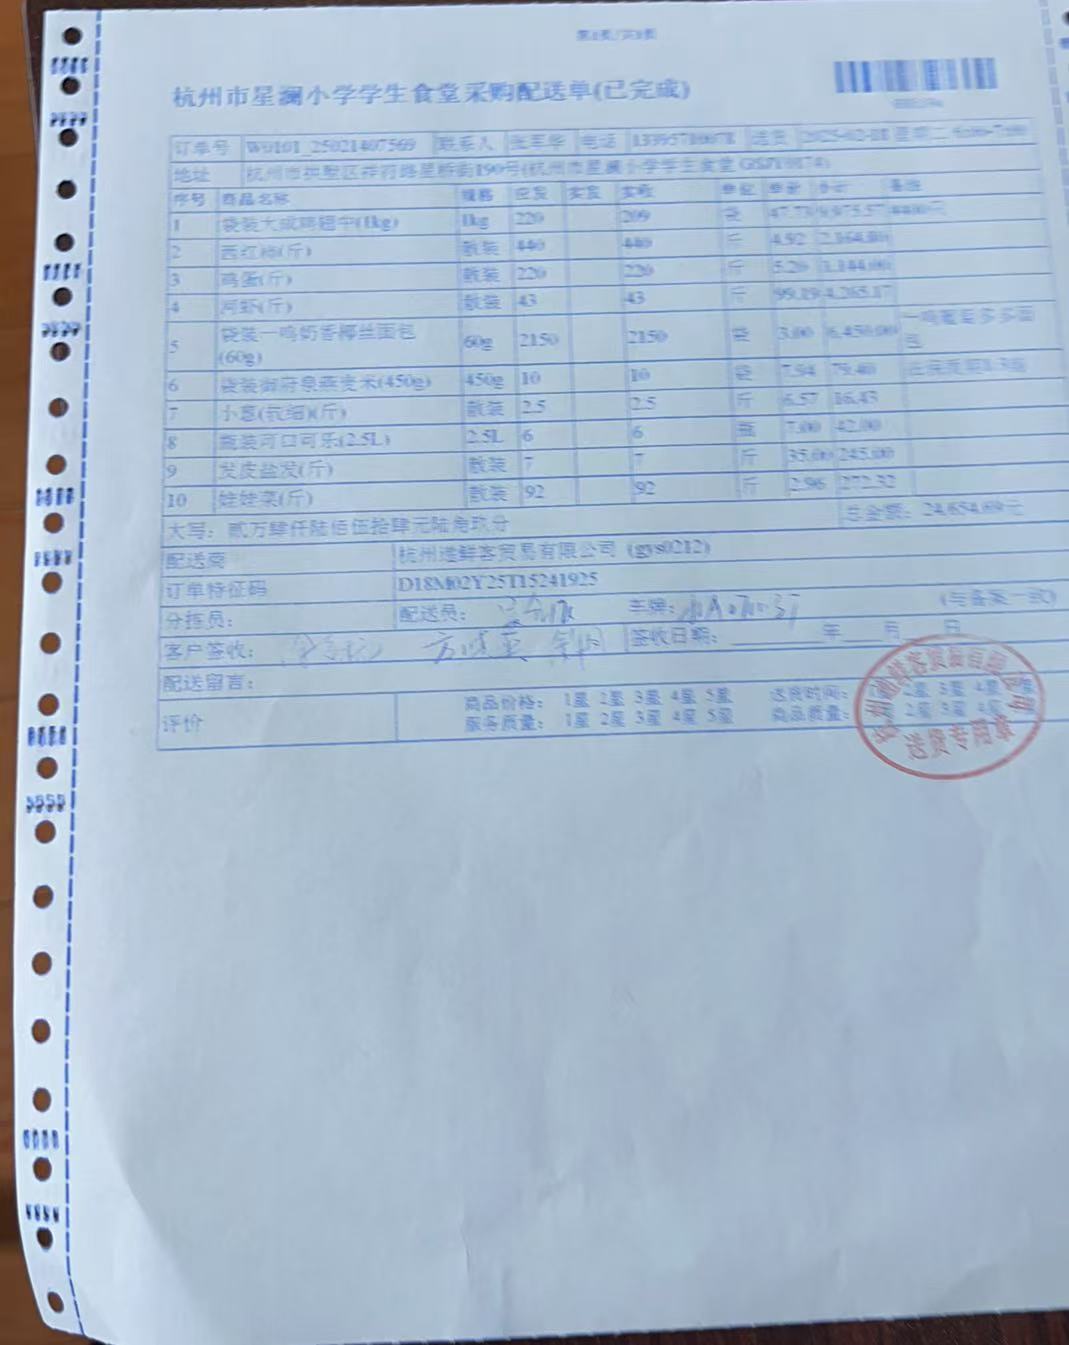 杭州市星澜小学学生食堂采购配送单(已完成)
订单号 W0101_25021407569 联系人 张军华 电话 送货 2025-02-18 星期二 6:00-7:00
地址 杭州市拱墅区祥符路星桥街190号(杭州市星澜小学学生食堂 GSJY0174)
序号 商品名称 规格 应发 实发 实收 单位 单价 合计 备注
1 袋装大成鸡翅中(1kg) 1kg 220 209 袋 47.73 9,975.57
2 西红柿(斤) 散装 440 440 斤 4.92 2,164.80
3 鸡蛋(斤) 散装 220 220 斤 5.20 1,144.00
4 河虾(斤) 散装 43 43 斤 99.19 4,265.17
5 袋装一鸣奶香椰丝面包(60g) 60g 2150 2150 袋 3.00 6,450.00 一鸣葡萄多多面包
6 袋装御府泉燕麦米(450g) 450g 10 10 袋 7.94 79.40
7 小葱(软细)(斤) 散装 2.5 2.5 斤 6.57 16.43
8 瓶装可口可乐(2.5L) 2.5L 6 6 瓶 7.00 42.00
9 发皮盐发(斤) 散装 7 7 斤 35.00 245.00
10 娃娃菜(斤) 散装 92 92 斤 2.96 272.32
大写：贰万肆仟陆佰伍拾肆元陆角玖分 总金额：24,654.69元
配送商 杭州遂鲜客贸易有限公司 (gys0212)
订单特征码 D18M02Y25T15241925
分拣员： 配送员： 车牌： (与备案一致)
客户签收： 签收日期： 年 月 日
配送留言：
评价 商品价格： 1星 2星 3星 4星 5星 送货时间： 2星 3星 4星
服务质量： 1星 2星 3星 4星 5星 商品质量： 2星 3星 4星
送货专用章